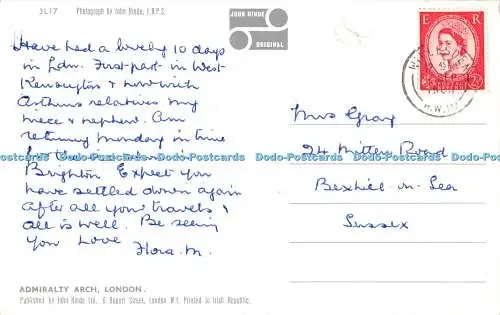 3L17 Photograph by John Hinde, F.R.P.S.
JOHN HINDE
ORIGINAL
E R
Have had a lovely 10 days
in Ldn. First part in West
Kensington & now with
Arthurs relatives my
niece & nephew. Am
returning Monday in time
Brighton Expect you
have settled down again
after all your travels &
all is well. Be seeing
you Love
Flora. M.
Mrs Gray
24 Milton Road
Bexhill-on-Sea
Sussex
Dodo-Postcards Dodo-Postcards Dodo-Postcards Dodo-Postcards Dodo-Postcards Dodo-Postcards
ADMIRALTY ARCH, LONDON.
Published by John Hinde Ltd., 6 Rupert Street, London W.1. Printed in Irish Republic.